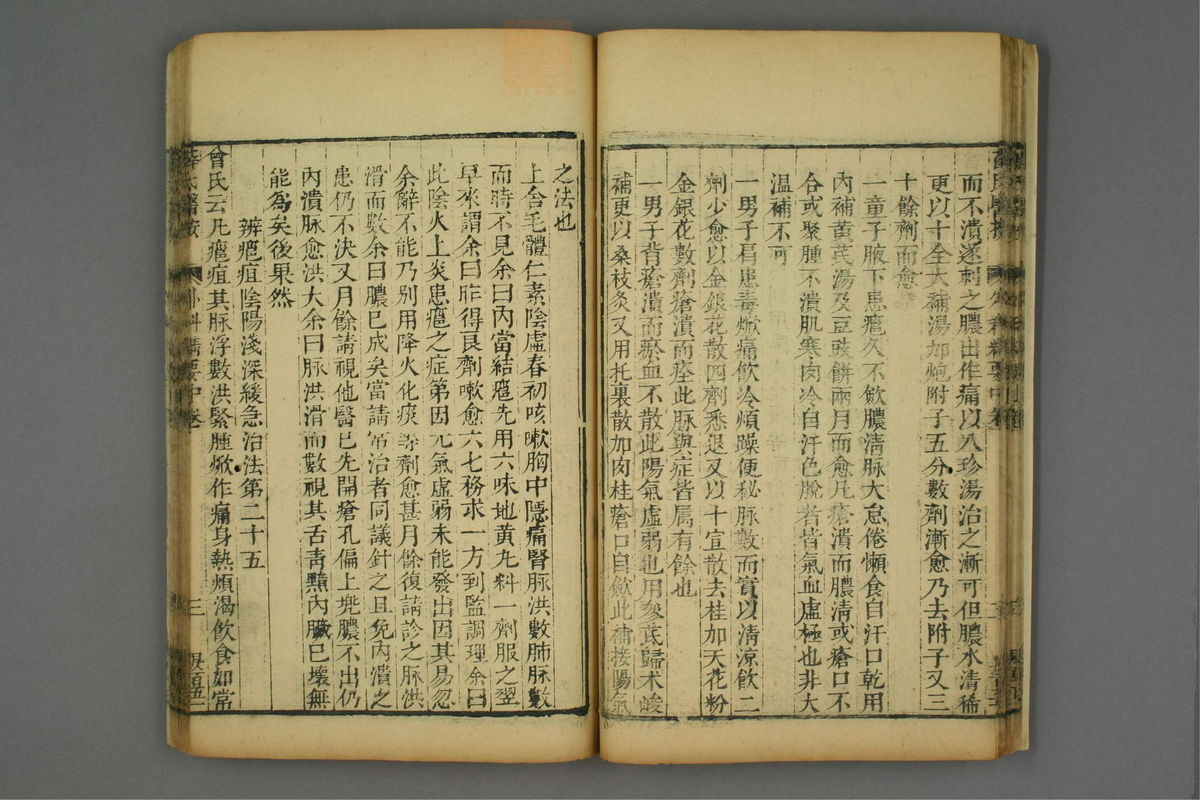 而不潰遂刺之膿出作痛以八珍湯治之漸可但膿水清稀
更以十全大補湯加炮附子五分數劑漸愈乃去附子又三
十餘劑而愈
一童子腋下患瘡久不飲膿清脉大怠倦懶食自汗口乾用
內補黃芪湯及豆豉餅兩月而愈凡瘡潰而膿清或瘡口不
合或聚腫不潰肌寒肉冷自汗色脫者皆氣血虛極也非大
温補不可
一男子眉患毒焮痛飲冷煩躁便秘脉數而實以清凉飲二
劑少愈以金銀花散四劑悉退又以十宣散去桂加天花粉
金銀花數劑瘡潰而痊此脉與症皆属有餘也
一男子背瘡潰而瘀血不散此陽氣虛弱也用參芪歸术峻
補更以桑枝灸又用托裏散加肉桂瘡口自斂此補接陽氣
之法也
上舍毛體仁素陰虛春初咳嗽胸中隱痛腎脉洪數肺脉數
而時不見余曰內當結瘡先用六味地黃丸料一劑服之翌
早來謂余曰昨得良劑嗽愈六七務求一方到監調理余曰
此陰火上炎患瘡之症第因元氣虛弱未能發出因其易忽
余辭不能乃別用降火化痰等劑愈甚月餘復請診之脉洪
滑而數余曰膿已成矣當請 治者同議針之且免內潰之
患仍不決又月餘請視他醫已先開瘡孔偏上 膿不出仍
內潰脉愈洪大余曰脉洪滑而數視其舌青黯內臟已壞無
能為矣後果然
辨瘡疽陰陽淺深緩急治法第二十五
曾氏云凡瘡疽其脉浮數洪緊腫焮作痛身熱煩渴飲食如常
薛氏醫按
外科精要中卷
三